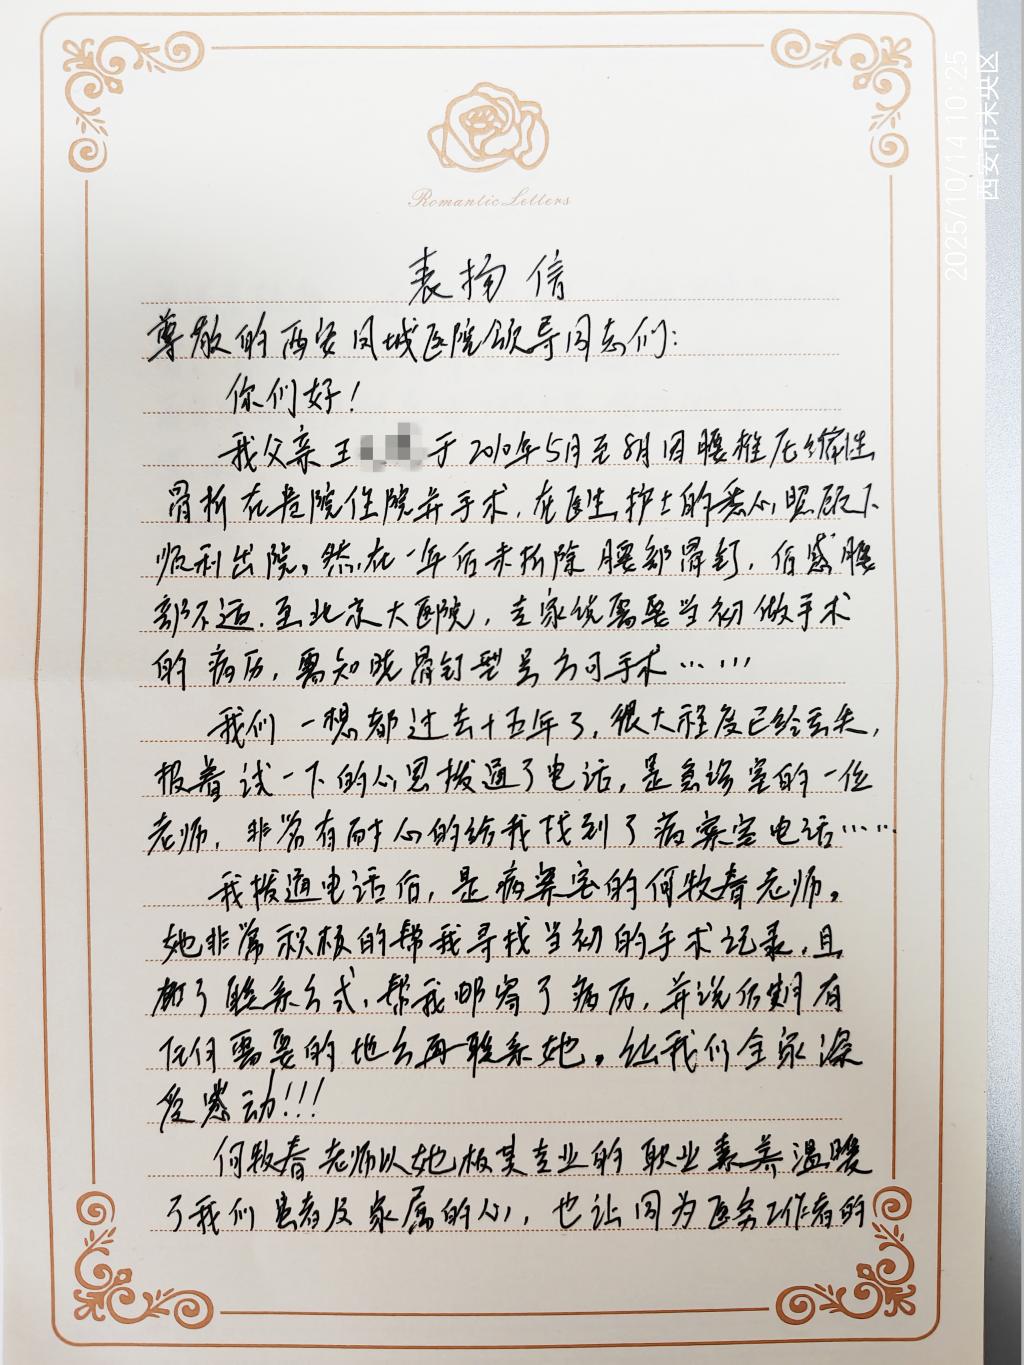 Romantic Letters
表扬信
尊敬的西安凤城医院领导同志们：
你们好！
我父亲王 于2010年5月至8月因腰椎压缩性
骨折在贵院住院并手术，在医生护士的悉心照顾下
顺利出院。然在一年后未拆除腰部骨钉，后感腰
部不适，至北京大医院，专家说需要当初做手术
的病历，需知晓骨钉型号方可手术……
我们一想都过去十五年了，很大程度已经丢失，
报着试一下的心思拨通了电话，是急诊室的一位
老师，非常有耐心的给我找到了病案室电话……
我拨通电话后，是病案室的何牧春老师。
她非常积极的帮我寻找当初的手术记录，且
加了联系方式，帮我邮寄了病历，并说后期有
任何需要的地方再联系她。让我们全家深
受感动！！！
何牧春老师以她极其专业的职业素养温暖
了我们患者及家属的心，也让同为医务工作者的
2025/10/14 10:25
西安市未央区